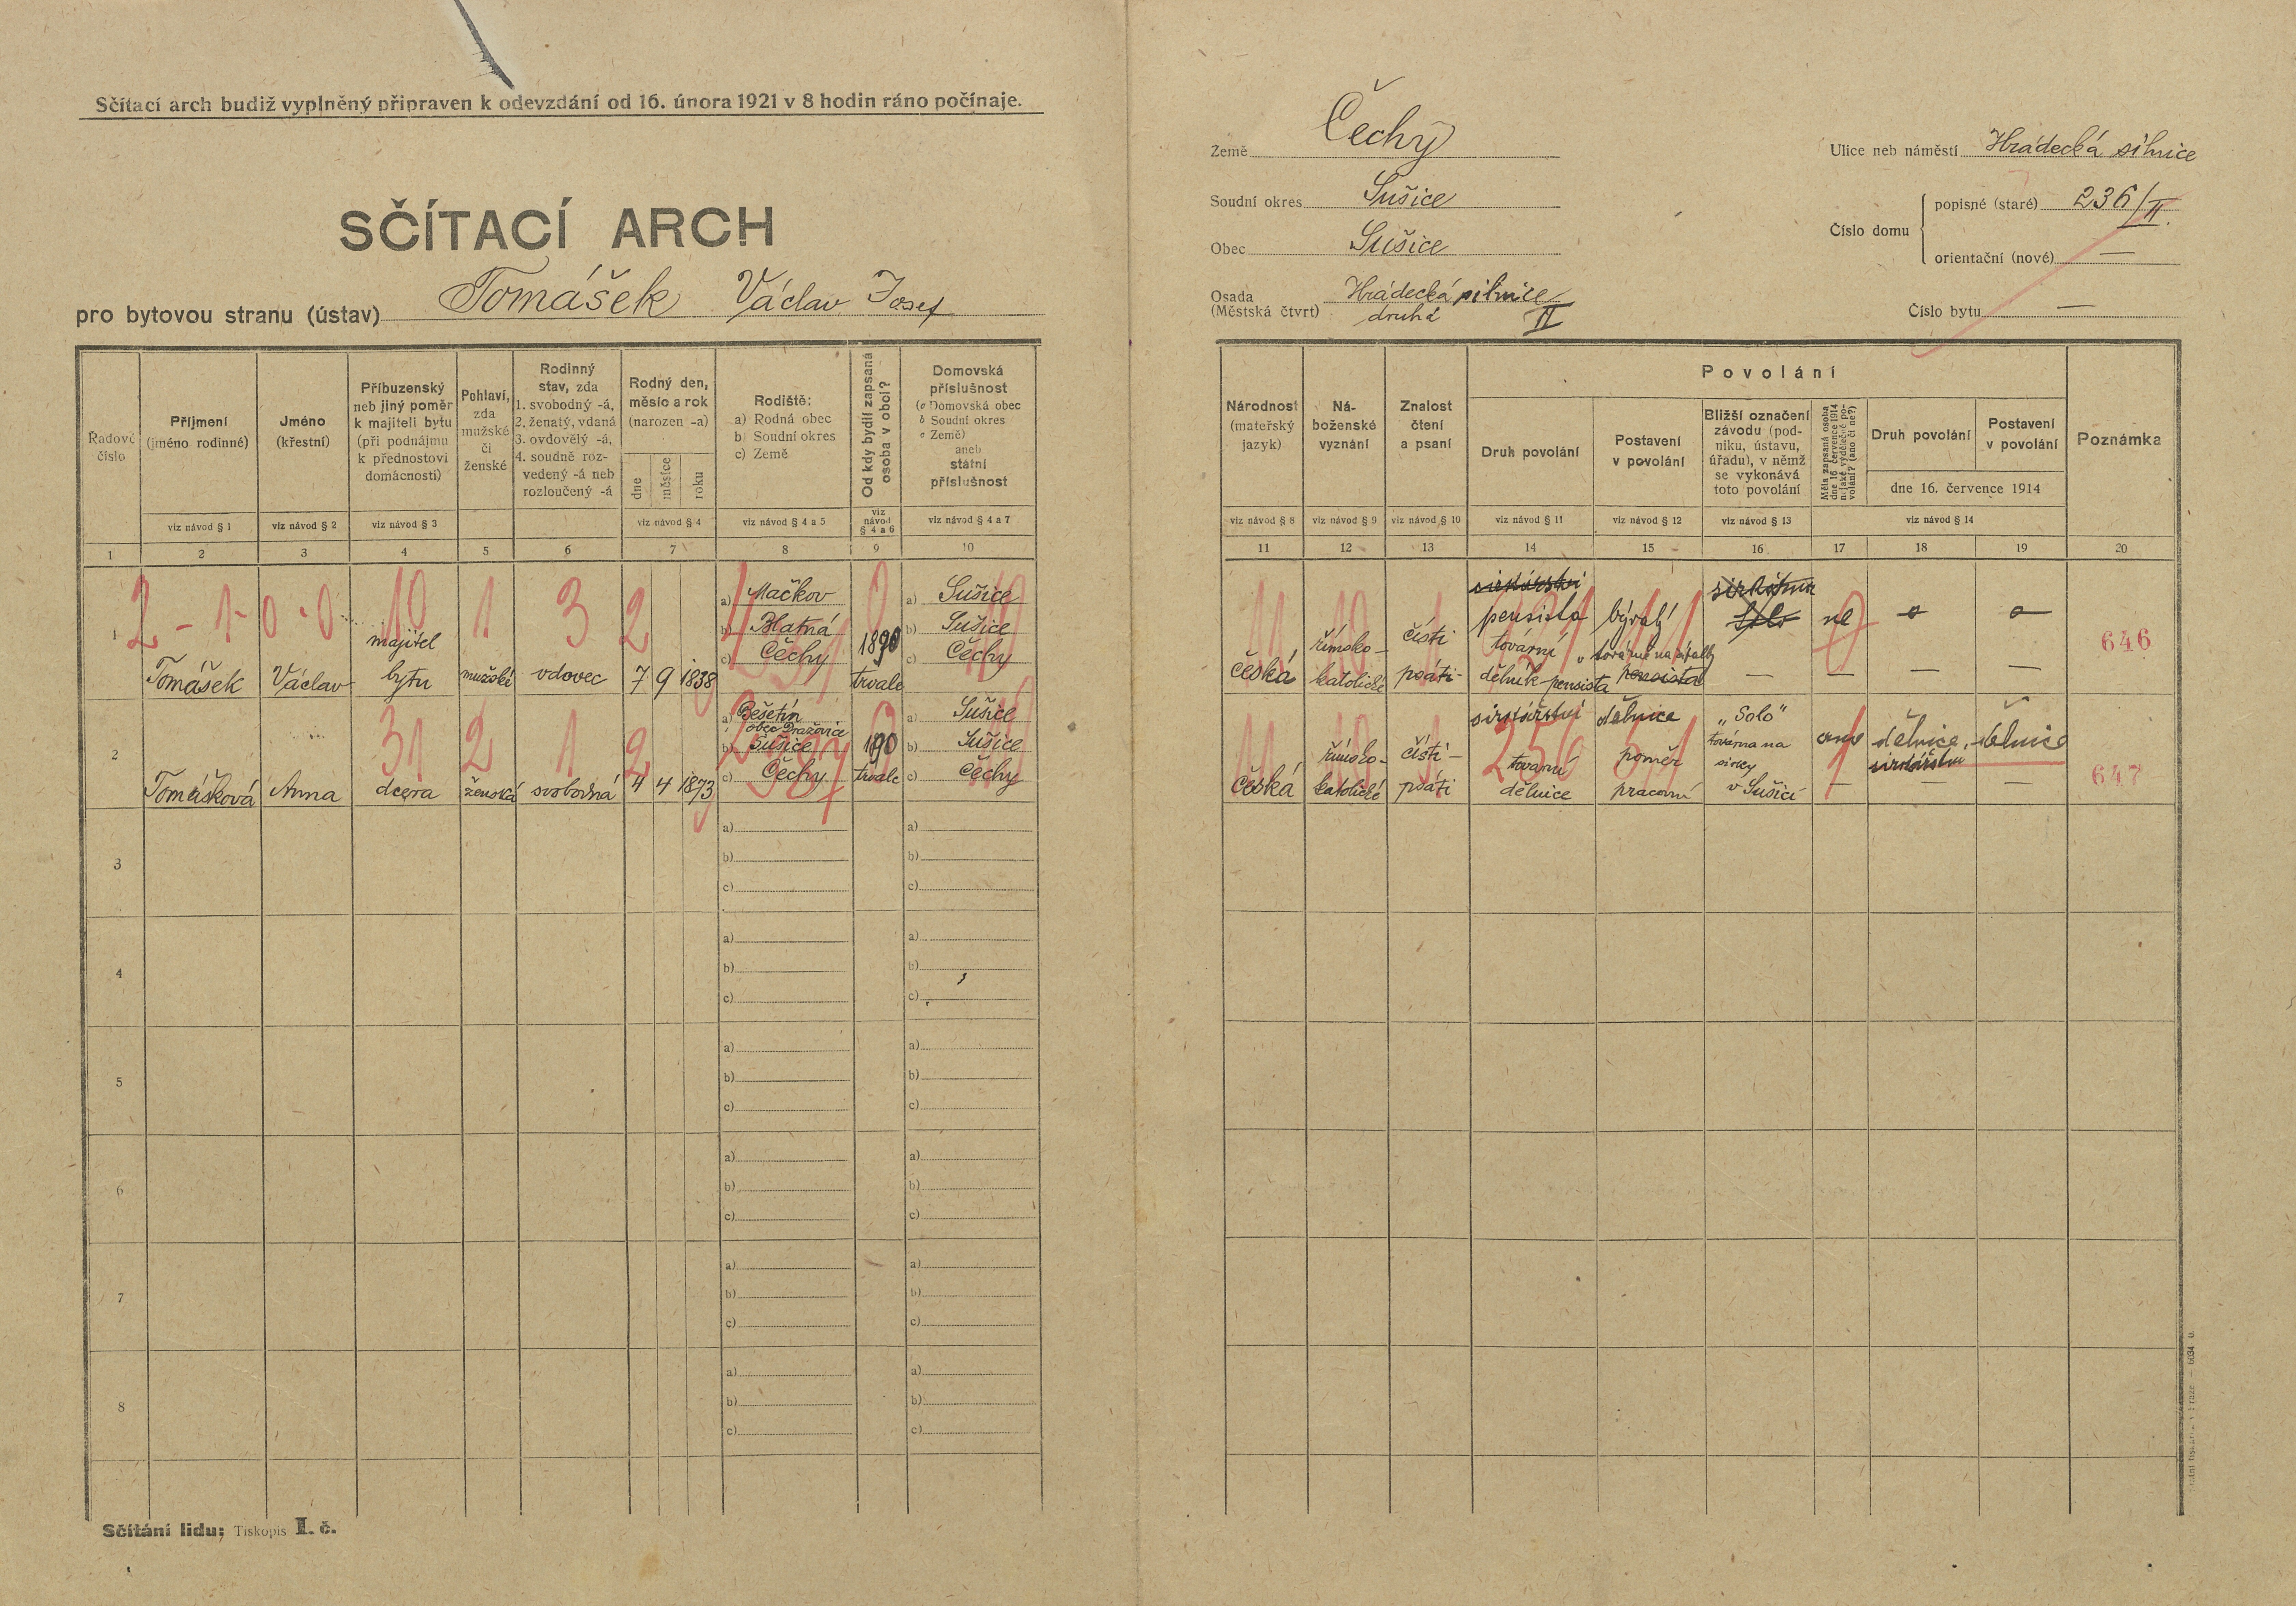 Sčítací arch budiž vyplněný připraven k odevzdání od 16. února 1921 v 8 hodin ráno počínaje.
SČÍTACÍ ARCH
pro bytovou stranu (ústav) Tomášek Václav Josef
Země Čechy
Soudní okres Sušice
Obec Sušice
Osada (Městská čtvrt) Hrádecká silnice
druhá II
Ulice neb náměstí Hrádecká silnice
Číslo domu
popisné (staré) 236/II.
orientační (nové) —
Číslo bytu —
Řadové číslo
Příjmení (jméno rodinné)
viz návod § 1
Jméno (křestní)
viz návod § 2
Příbuzenský
neb jiný poměr
k majiteli bytu
(při podnájmu
k přednostovi
domácnosti)
viz návod § 3
Pohlaví,
zda
mužské
či
ženské
Rodinný
stav, zda
1. svobodný -á,
2. ženatý, vdaná
3. ovdovělý -á,
4. soudně roz-
vedený -á neb
rozloučený -á
Rodný den,
měsíc a rok
(narozen -a)
dne
měsíce
roku
viz návod § 4
Rodiště:
a) Rodná obec
b) Soudní okres
c) Země
viz návod § 4 a 5
Od kdy bydlí zapsaná
osoba v obci?
viz
návod
§ 4 a 6
Domovská
příslušnost
(a Domovská obec
b Soudní okres
c Země)
aneb
státní
příslušnost
viz návod § 4 a 7
Národnost
(mateřský
jazyk)
viz návod § 8
Ná-
boženské
vyznání
viz návod § 9
Znalost
čtení
a psaní
viz návod § 10
Povolání
Druh povolání
viz návod § 11
Postavení
v povolání
viz návod § 12
Bližší označení
závodu (pod-
niku, ústavu,
úřadu), v němž
se vykonává
toto povolání
viz návod § 13
Měla zapsaná osoba
dne 16 července 1914
nějaké výdělečné po-
volání? (ano či ne?)
Druh povolání
Postavení
v povolání
dne 16. července 1914
viz návod § 14
Poznámka
1 2 3 4 5 6 7 8 9 10
11 12 13 14 15 16 17 18 19 20
2 - 1 - 0 - 0 10 1 3 2
1
Tomášek
Václav
majitel
bytu
mužské
vdovec
7 9 1838
a) Mačkov
b) Blatná
c) Čechy
1890
trvale
a) Sušice
b) Sušice
c) Čechy
česká
římsko-
katolické
čísti
psáti
pensista
tovární
dělník pensista
bývalý
pensista
—
ne
—
—
646
31 2 1 2
2
Tomášková
Anna
dcera
ženská
svobodná
4 4 1873
a) Bešetín
obec Dražovice
b) Sušice
c) Čechy
trvale
a) Sušice
b) Sušice
c) Čechy
česká
římsko-
katolické
čísti -
psáti
sirkářství
tovární
dělnice
dělnice
poměr
pracovní
"Solo"
továrna na
sirky
v Sušici
ano
—
dělnice,
sirkářství
—
dělnice
—
647
3
a)
b)
c)
a)
b)
c)
4
a)
b)
c)
a)
b)
c)
5
a)
b)
c)
a)
b)
c)
6
a)
b)
c)
a)
b)
c)
7
a)
b)
c)
a)
b)
c)
8
a)
b)
c)
a)
b)
c)
Sčítání lidu; Tiskopis I. č.